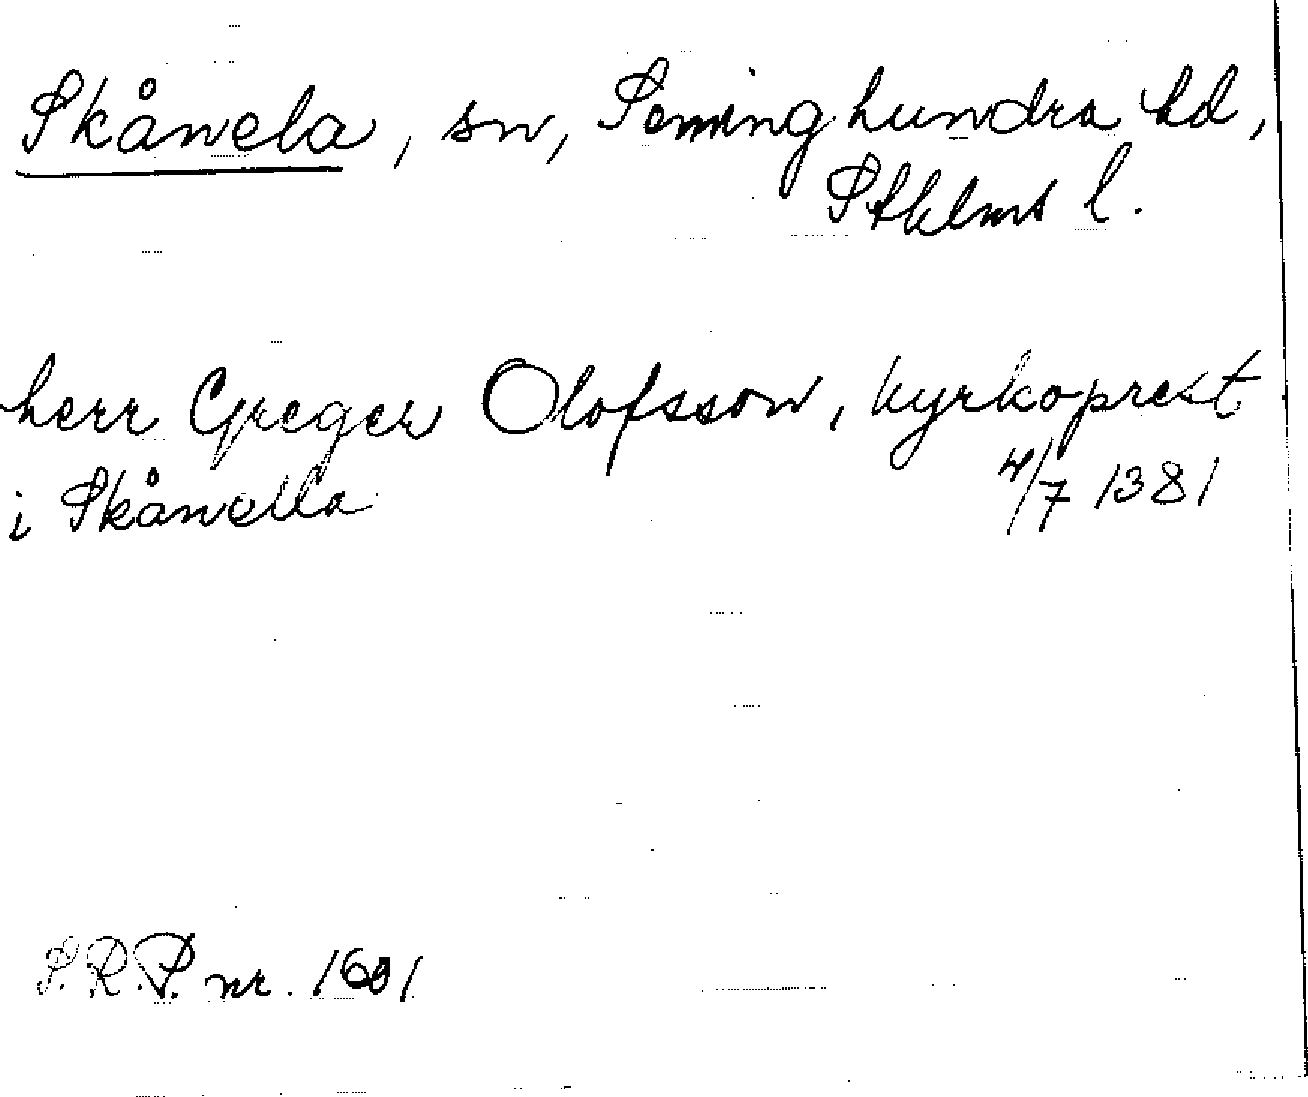 Skånela, sn, Seminghundra hd,
Sthlms l.
herr Greger Olofsson, kyrkoprest
i Skånella 4/7 1381
S.R.P. nr.